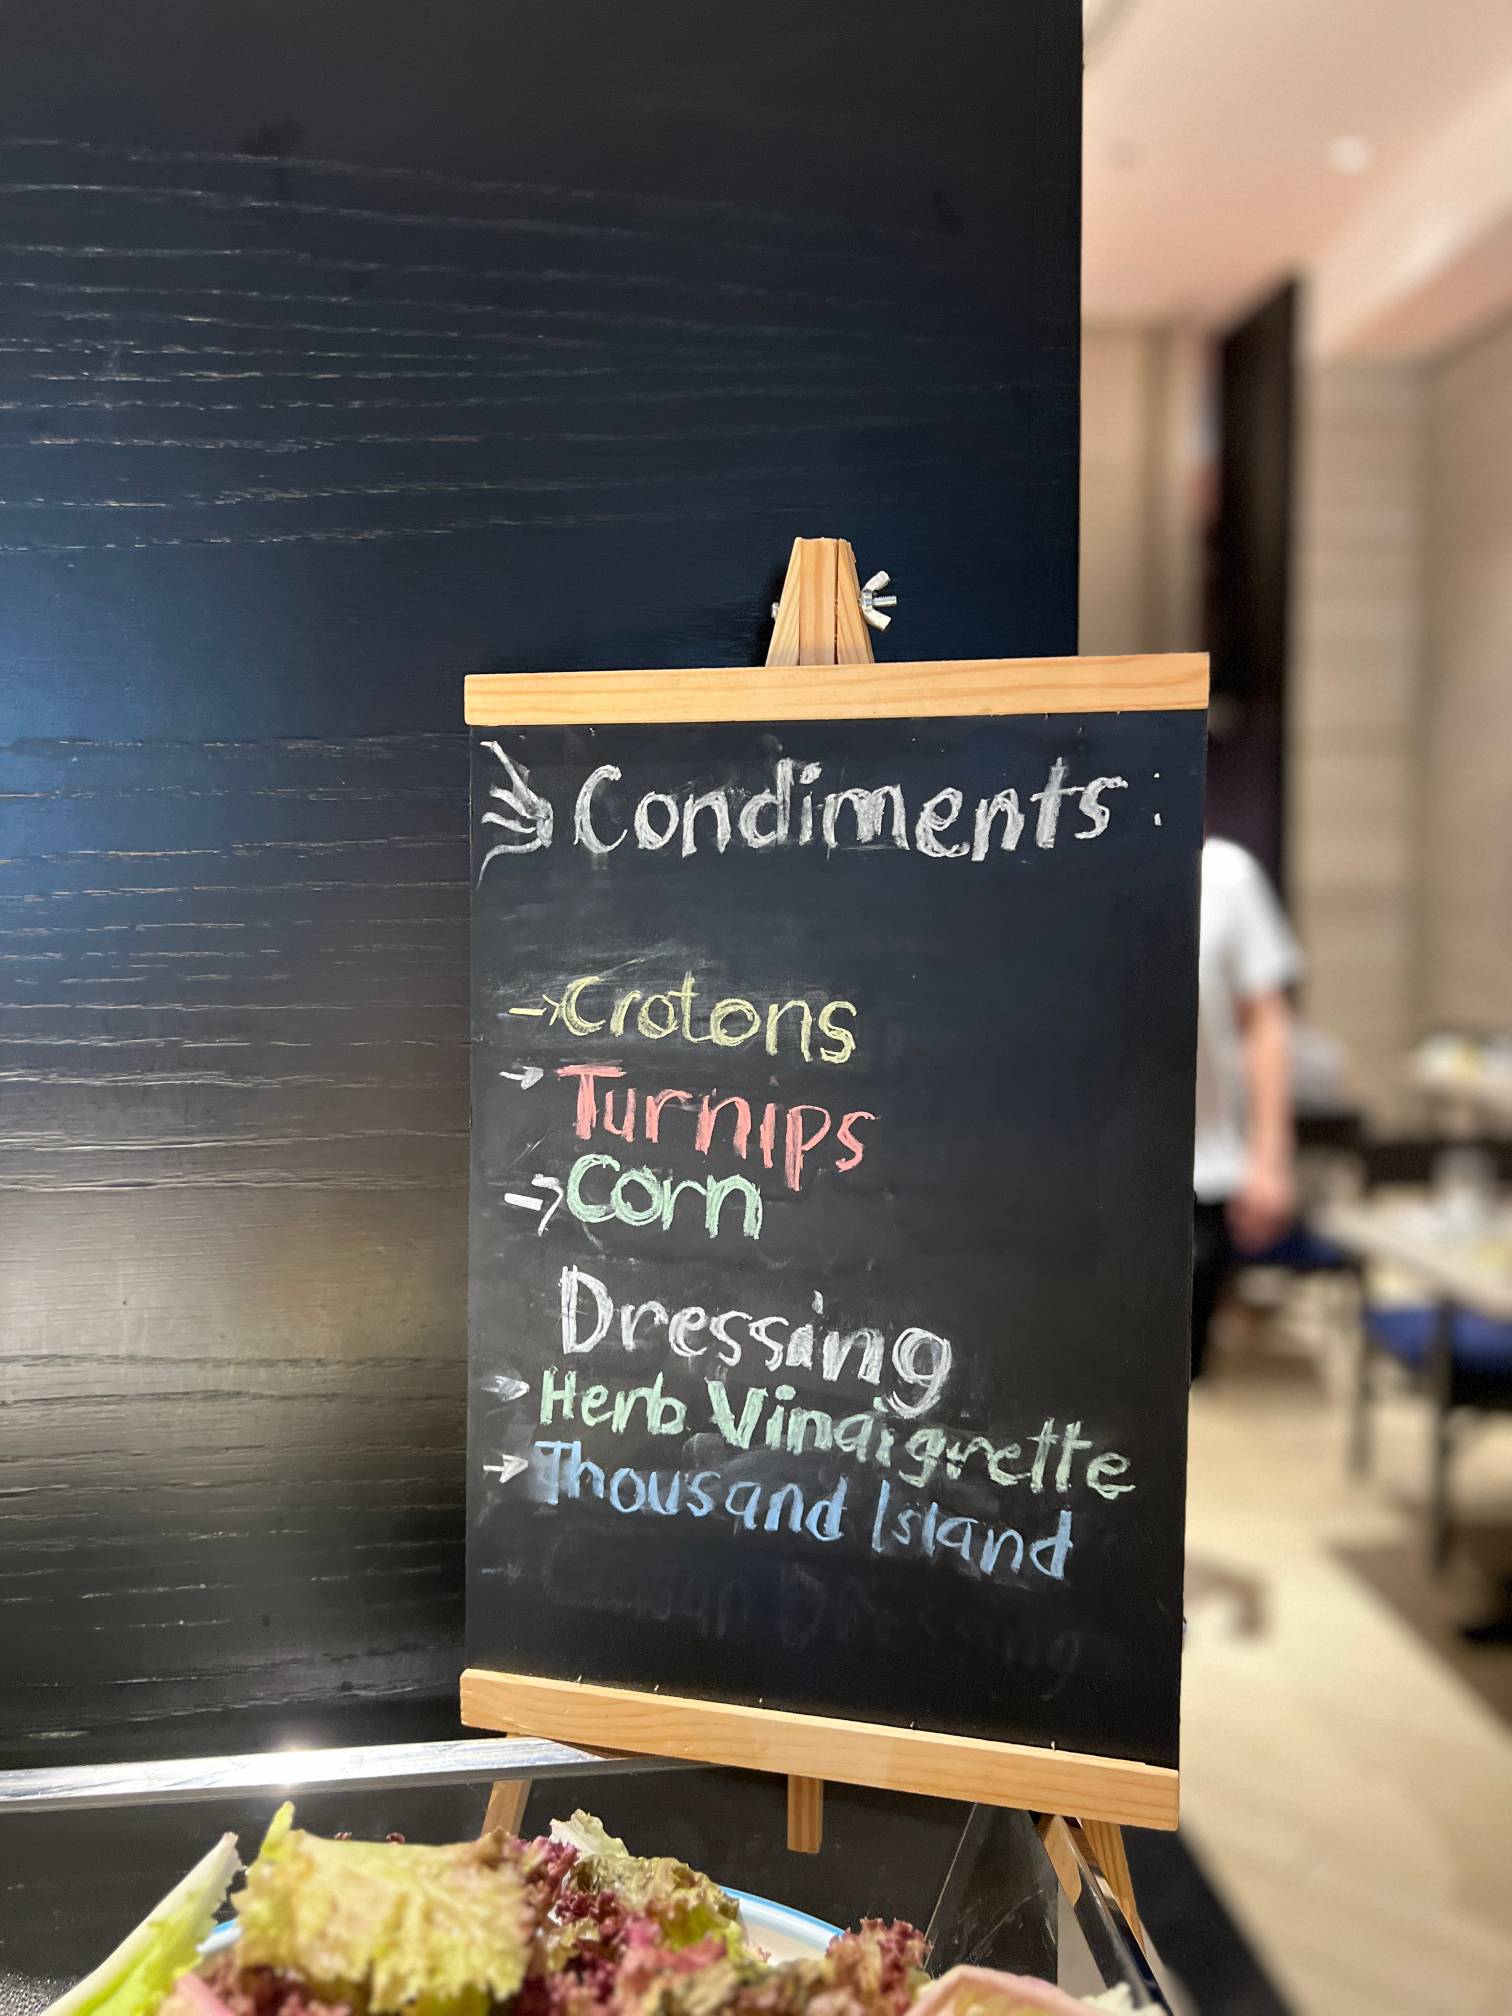 Condiments:
→ Crotons
→ Turnips
→ Corn
Dressing
→ Herb Vinaigrette
→ Thousand Island
Dressing